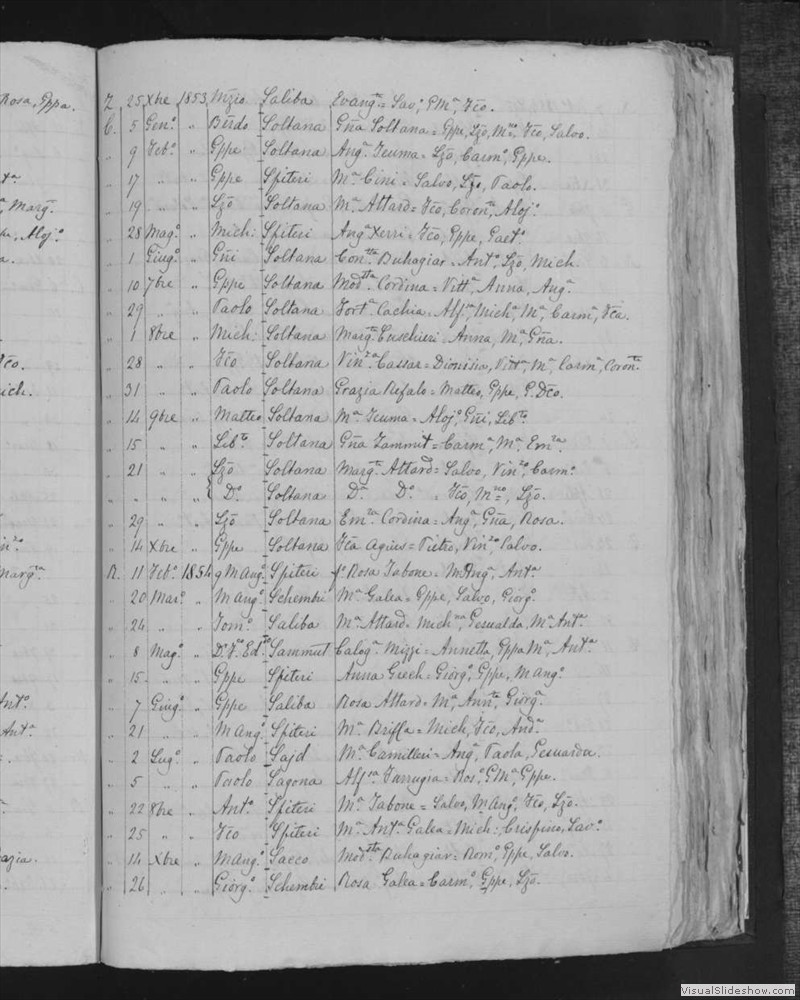 Rosa, Gppa.
Marg.
Aloj.º
ich.
Marg.ª
azia.
Z. 25 Xbre 1853 Mzio Saliba Evang.ta = Sav.º, GM.ª, Fco.
C. 5 Gen.º " Bñdo Soltana Gña Soltana = Gppe, Lzo, Fco, Salvo.
" 9 Feb.º " Gppe Soltana Ang.ª Icuma = Lzo, Carm.º, Gppe.
" 17 " " Gppe Spiteri M.ª Cini = Salvo, Lzo, Paolo.
" 19 " " Lzo Soltana M.ª Attard = Fco, Coron.ta, Aloj.º
" 28 Mag.º " Mich: Spiteri Ang.ª Xerri = Fco, Gppe, Gaet.º
" 1 Giug.º " Gñi Soltana Con.tta Buhagiar = Ant.º, Lzo, Mich.
" 10 7bre " Gppe Soltana Mod.sta Cordina = Vitt.ª Anna, Ang.ª
" 29 " " Paolo Soltana Fort.ª Cachia = Alf.sa, Mich.ª, M.ª, Carm.ª, Fca.
" 1 8bre " Mich: Soltana Marg.ta Euschieri = Anna, M.ª Gña.
" 28 " " Fco Soltana Vin.za Cassar = Dionisio, Vitt.ª, M.ª, Carm.ª, Coron.ta
" 31 " " Paolo Soltana Grazia Refalo = Matteo, Gppe, G. Dco.
" 14 9bre " Matteo Soltana M.ª Icuma = Aloj.º, Gñi, Lib.to
" 15 " " Lib.to Soltana Gña Zammit = Carm.ª, M.ª Em.za
" 21 " " Lzo Soltana Marg.ta Attard = Salvo, Vin.zo, Carm.º
" " " " D.º Soltana D.ª D.º = Fco, Lzo.
" 29 " " Lzo Soltana Em.za Cordina = Ang.ª, Gña, Rosa.
" 14 Xbre " Gppe Soltana Fca Agius = Pietro, Vin.zo Salvo.
R. 11 Feb.º 1854 MAng.º Spiteri Rosa Tabone = MAng.ª, Ant.ª
" 20 Mar.º " MAng.º Schembri M.ª Galea = Gppe, Salvo, Giorg.º
" 24 " " Tom.º Saliba M.ª Attard = Mich.na, Gesualda, M.ª Ant.ª
" 8 Mag.º " Sammut Calog.ª Mizzi = Annetta, Gppa M.ª, Ant.ª
" 15 " " Gppe Spiteri Anna Grech = Giorg.º, Gppe, MAng.º
" 7 Giug.º " Gppe Saliba Rosa Attard = M.ª, Ann.ta, Giorg.ª
" 21 " " MAng.º Spiteri M.ª Briffa = Mich, Fco, And.ª
" 2 Lug.º " Paolo Sajd M.ª Camilleri = Ang.ª, Paola, Gesuarda.
" 5 " " Paolo Sagona Alf.sa Farrugia = Ros.º, GM.ª, Gppe.
" 22 8bre " Ant.º Spiteri M.ª Tabone = Salvo, MAng.º, Fco, Lzo.
" 25 " " Fco Spiteri M.ª Ant.ª Galea = Mich: Crispino, Sav.º
" 14 Xbre " MAng.º Sacco Mod.sta Buhagiar = Rom.º, Gppe, Salvo.
" 26 " " Giorg.º Schembri Rosa Galea = Carm.º, Gppe, Lzo.
VisualSlideshow.com